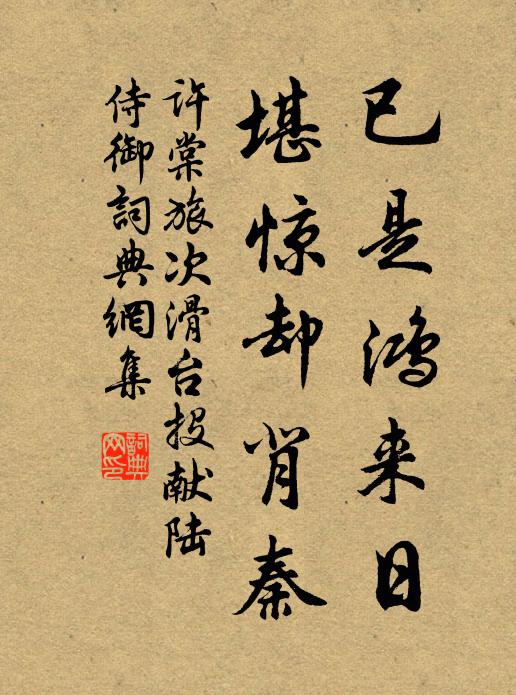 已是鸿来日
堪惊却背秦
许棠旅次滑台投献陆
侍御詞典網集
詞典网印